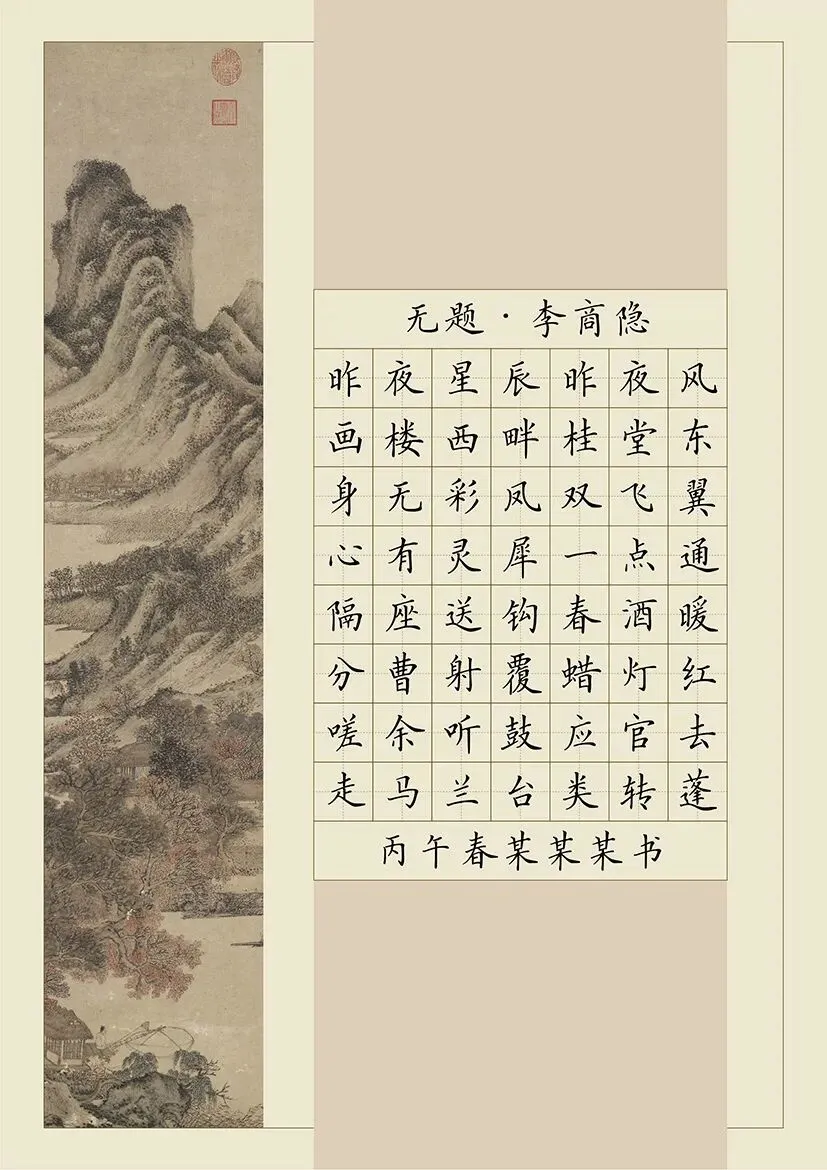 无题·李商隐
昨夜星辰昨夜风
画楼西畔桂堂东
身无彩凤双飞翼
心有灵犀一点通
隔座送钩春酒暖
分曹射覆蜡灯红
嗟余听鼓应官去
走马兰台类转蓬
丙午春某某某书